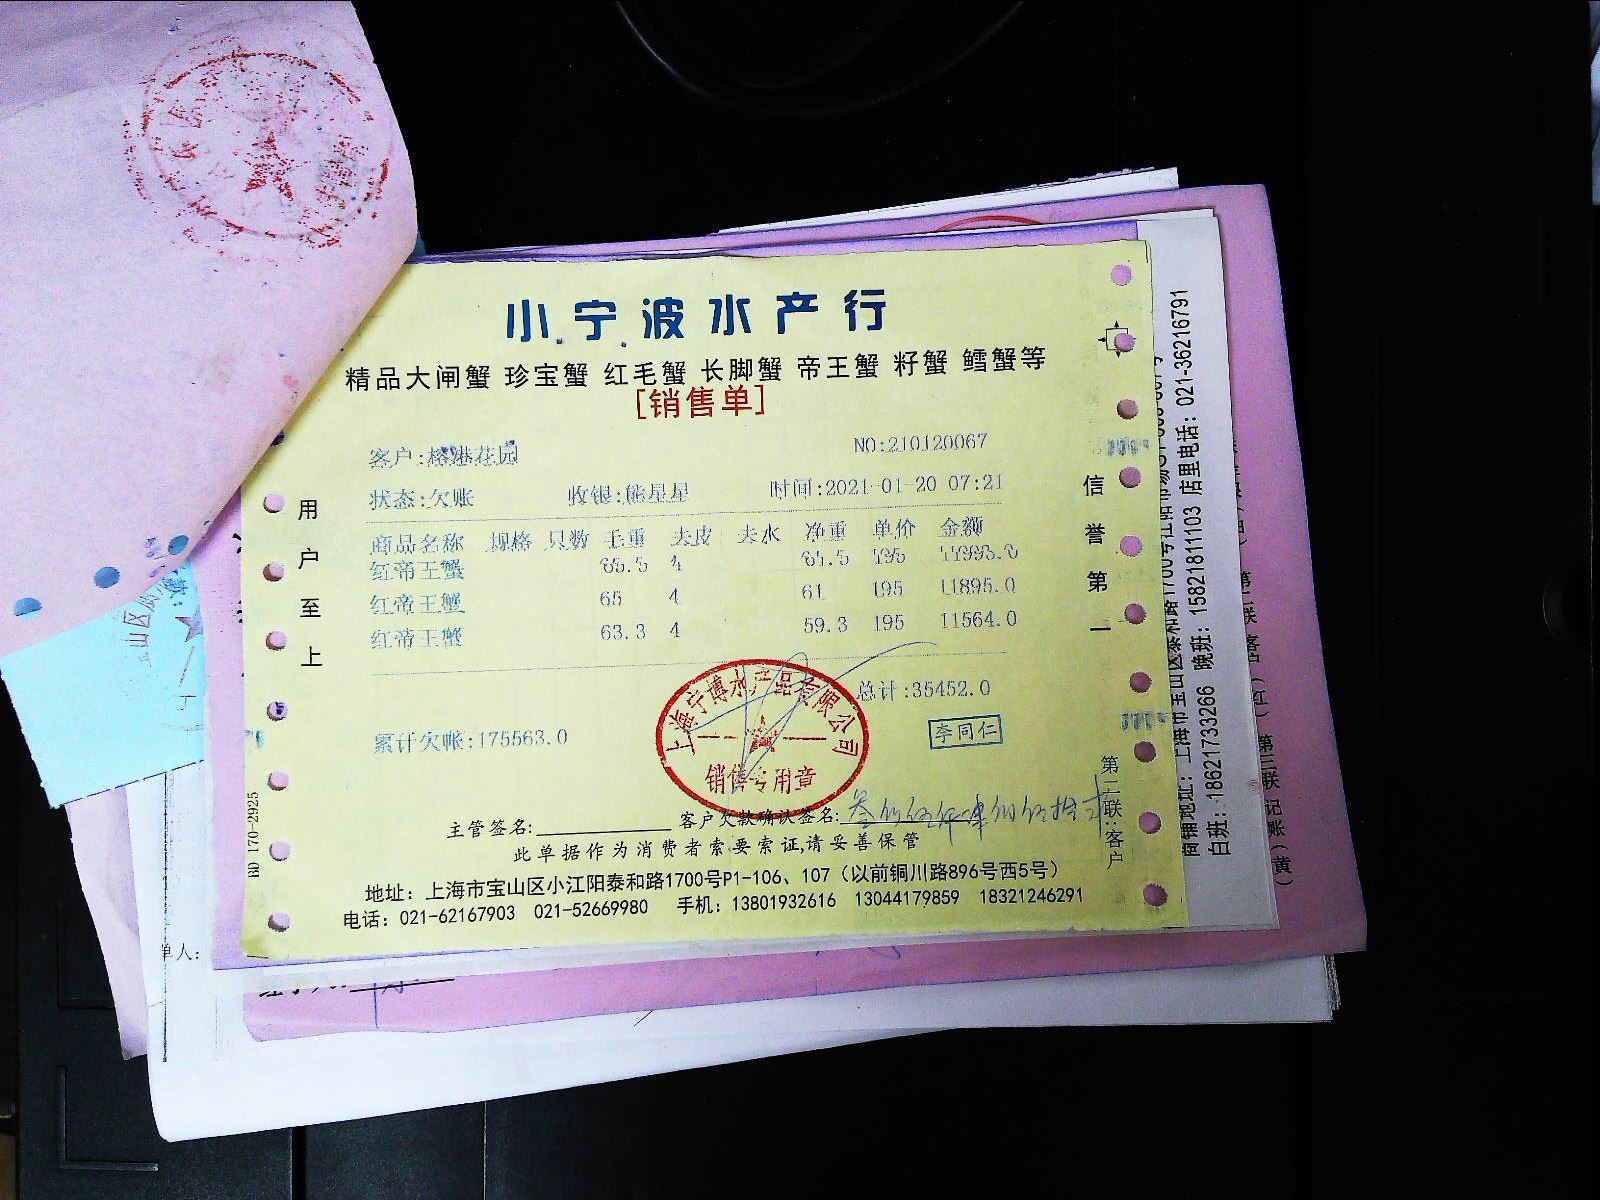 小宁波水产行
精品大闸蟹 珍宝蟹 红毛蟹 长脚蟹 帝王蟹 籽蟹 鳕蟹等
[销售单]
客户:榕港花园 NO:210120067
状态:欠账 收银:熊星星 时间:2021-01-20 07:21
商品名称 规格 只数 毛重 去皮 去水 净重 单价 金额
红帝王蟹 65.5 4 61.5 195 11993.0
红帝王蟹 65 4 61 195 11895.0
红帝王蟹 63.3 4 59.3 195 11564.0
总计:35452.0
累计欠帐:175563.0
李同仁
上海宁博水产品有限公司
销售专用章
主管签名: 客户欠款确认签名:
此单据作为消费者索要索证,请妥善保管
地址: 上海市宝山区小江阳泰和路1700号P1-106、107（以前铜川路896号西5号）
电话: 021-62167903 021-52669980 手机: 13801932616 13044179859 18321246291
用户至上
信誉第一
第二联:客户
BD 170-2925
白班: 18621733266 晚班: 15821811103 店里电话: 021-36216791
第三联 记账（黄）
单人: